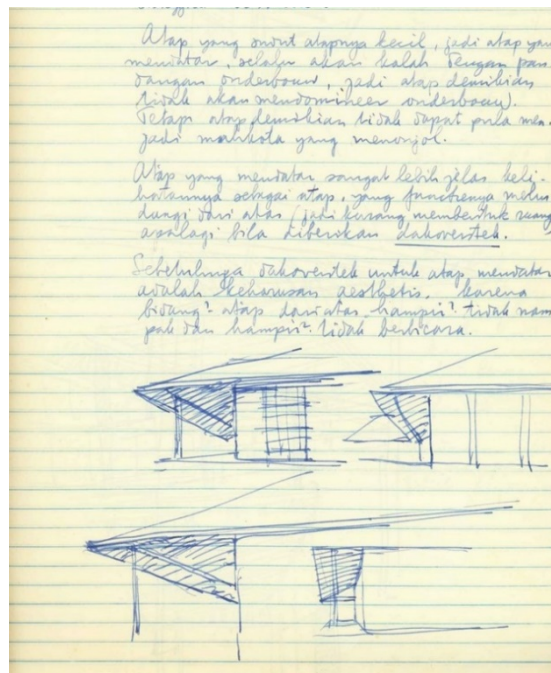 Atap yang sudut atapnya kecil, jadi atap yan
mendatar, selalu akan kalah dengan pan
dangan onderbouw, jadi atap demikian
tidak akan mendomineer onderbouw.
Tetapi atap demikian tidak dapat pula men-
jadi mahkota yang menonjol.
Atap yang mendatar sangat lebih jelas keli-
hatannya sebagai atap, yang functienya melin
dungi dari atas (jadi kurang membentuk ruang
apalagi bila diberikan dakoverstek.
Sebetulnya dakoverstek untuk atap mendatar
adalah keharusan aesthetis, karena
bidang² atap dari atas hampir² tidak nam
pak dan hampir² tidak berbicara.